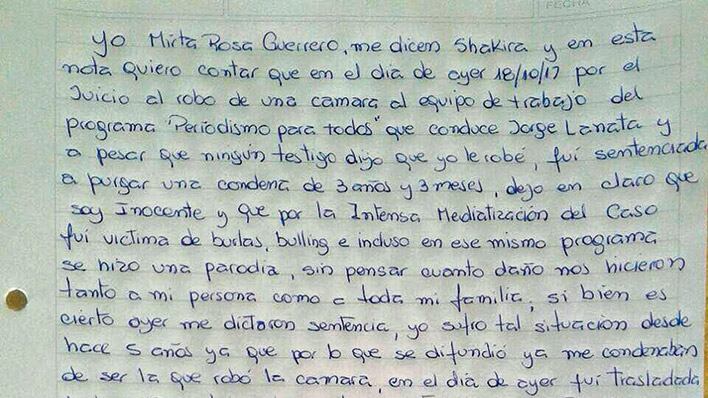 FECHA
yo Mirta Rosa Guerrero, me dicen Shakira y en esta
nota quiero contar que en el dia de ayer 18/10/17 por el
Juicio al robo de una camara al equipo de trabajo del
programa "Periodismo para todos" que conduce Jorge Lanata y
a pesar que ningún testigo dijo que yo le robé, fuí sentenciada
a purgar una condena de 3 años y 3 meses, dejo en claro que
soy Inocente y que por la Intensa Mediatización del Caso
fuí victima de burlas, bulling e incluso en ese mismo programa
se hizo una parodia, sin pensar cuanto daño nos hicieron
tanto a mi persona como a toda mi familia, si bien es
cierto ayer me dictaron sentencia, yo sufro tal situación desde
hace 5 años ya que por lo que se difundió ya me condenaban
de ser la que robó la camara, en el dia de ayer fuí trasladada